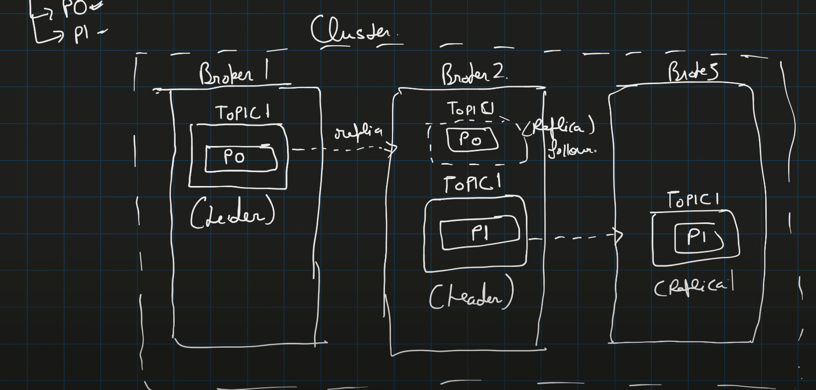 → P0
→ P1
Cluster.
Broker 1
TOPIC1
P0
(Leader)
replia
Broker 2.
TOPIC1
P0
(Replica)
follower.
TOPIC1
P1
(Leader)
Broke3
TOPIC1
P1
(Replica)